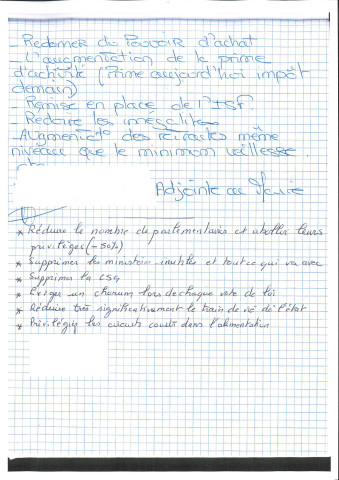 - Redonner du Pouvoir d'achat
- L'augmentation de la prime
d'activité (Prime aujourd'hui impôt
demain)
- Remise en place de l'ISF
- Réduire les inégalités
- Augmentat° des retraites même
niveau que le minimum vieillesse.
Adjointe au Maire
* Réduire le nombre de parlementaires et abolir leurs
privilèges (-50%)
* Supprimer les ministères inutiles et tout ce qui va avec
* Supprimer la CSG
* Exiger un chorum lors de chaque vote de loi
* Réduire très significativement le train de vie de l'état
* Privilégier les circuits courts dans l'alimentation